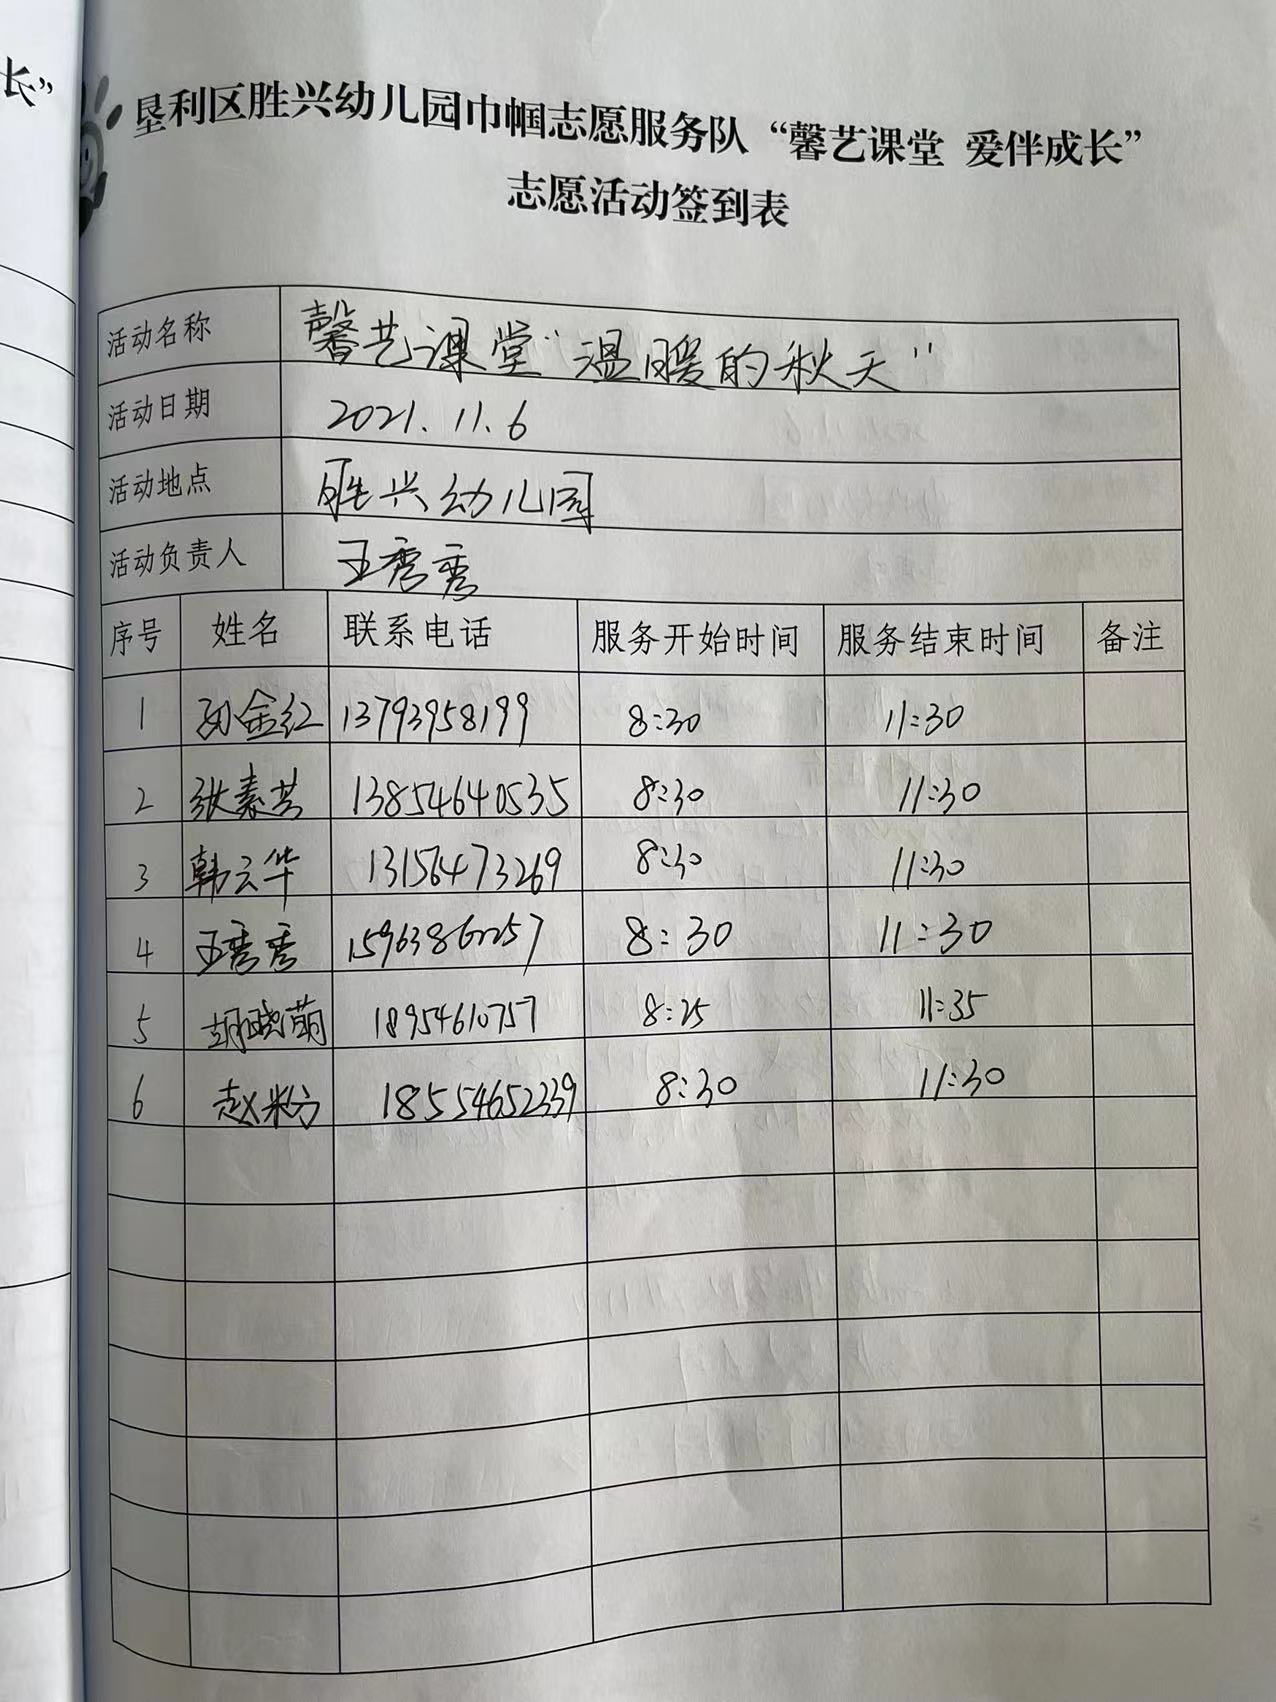 长”
垦利区胜兴幼儿园巾帼志愿服务队“馨艺课堂 爱伴成长”
志愿活动签到表
活动名称 馨艺课堂“温暖的秋天”
活动日期 2021.11.6
活动地点 胜兴幼儿园
活动负责人 王秀秀
序号 姓名 联系电话 服务开始时间 服务结束时间 备注
1 孙金红 13793958199 8:30 11:30
2 张素芸 13854640535 8:30 11:30
3 韩云华 13156473269 8:30 11:30
4 王秀秀 8:30 11:30
5 胡晓萌 18954610757 8:25 11:35
6 赵彩方 18554652339 8:30 11:30